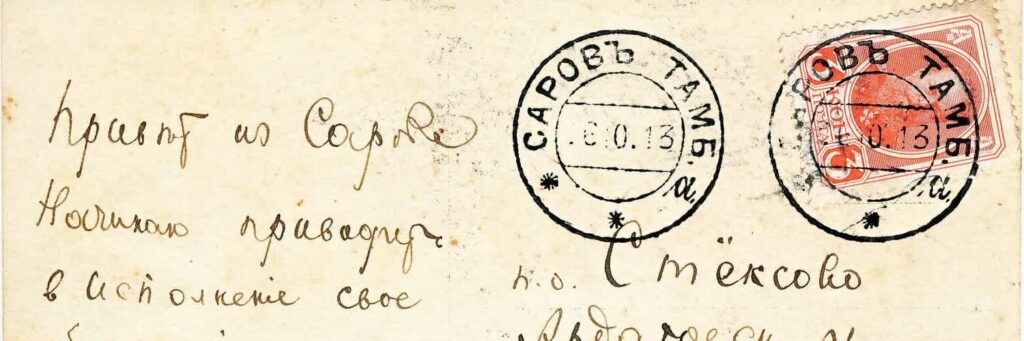 Привѣт из Сарова
Начинаю приводить
в исполненіе свое
САРОВЪ ТАМБ.
.6.10.13
а.
САРОВЪ ТАМБ.
.6.10.13
а.
п.о. Стёксово